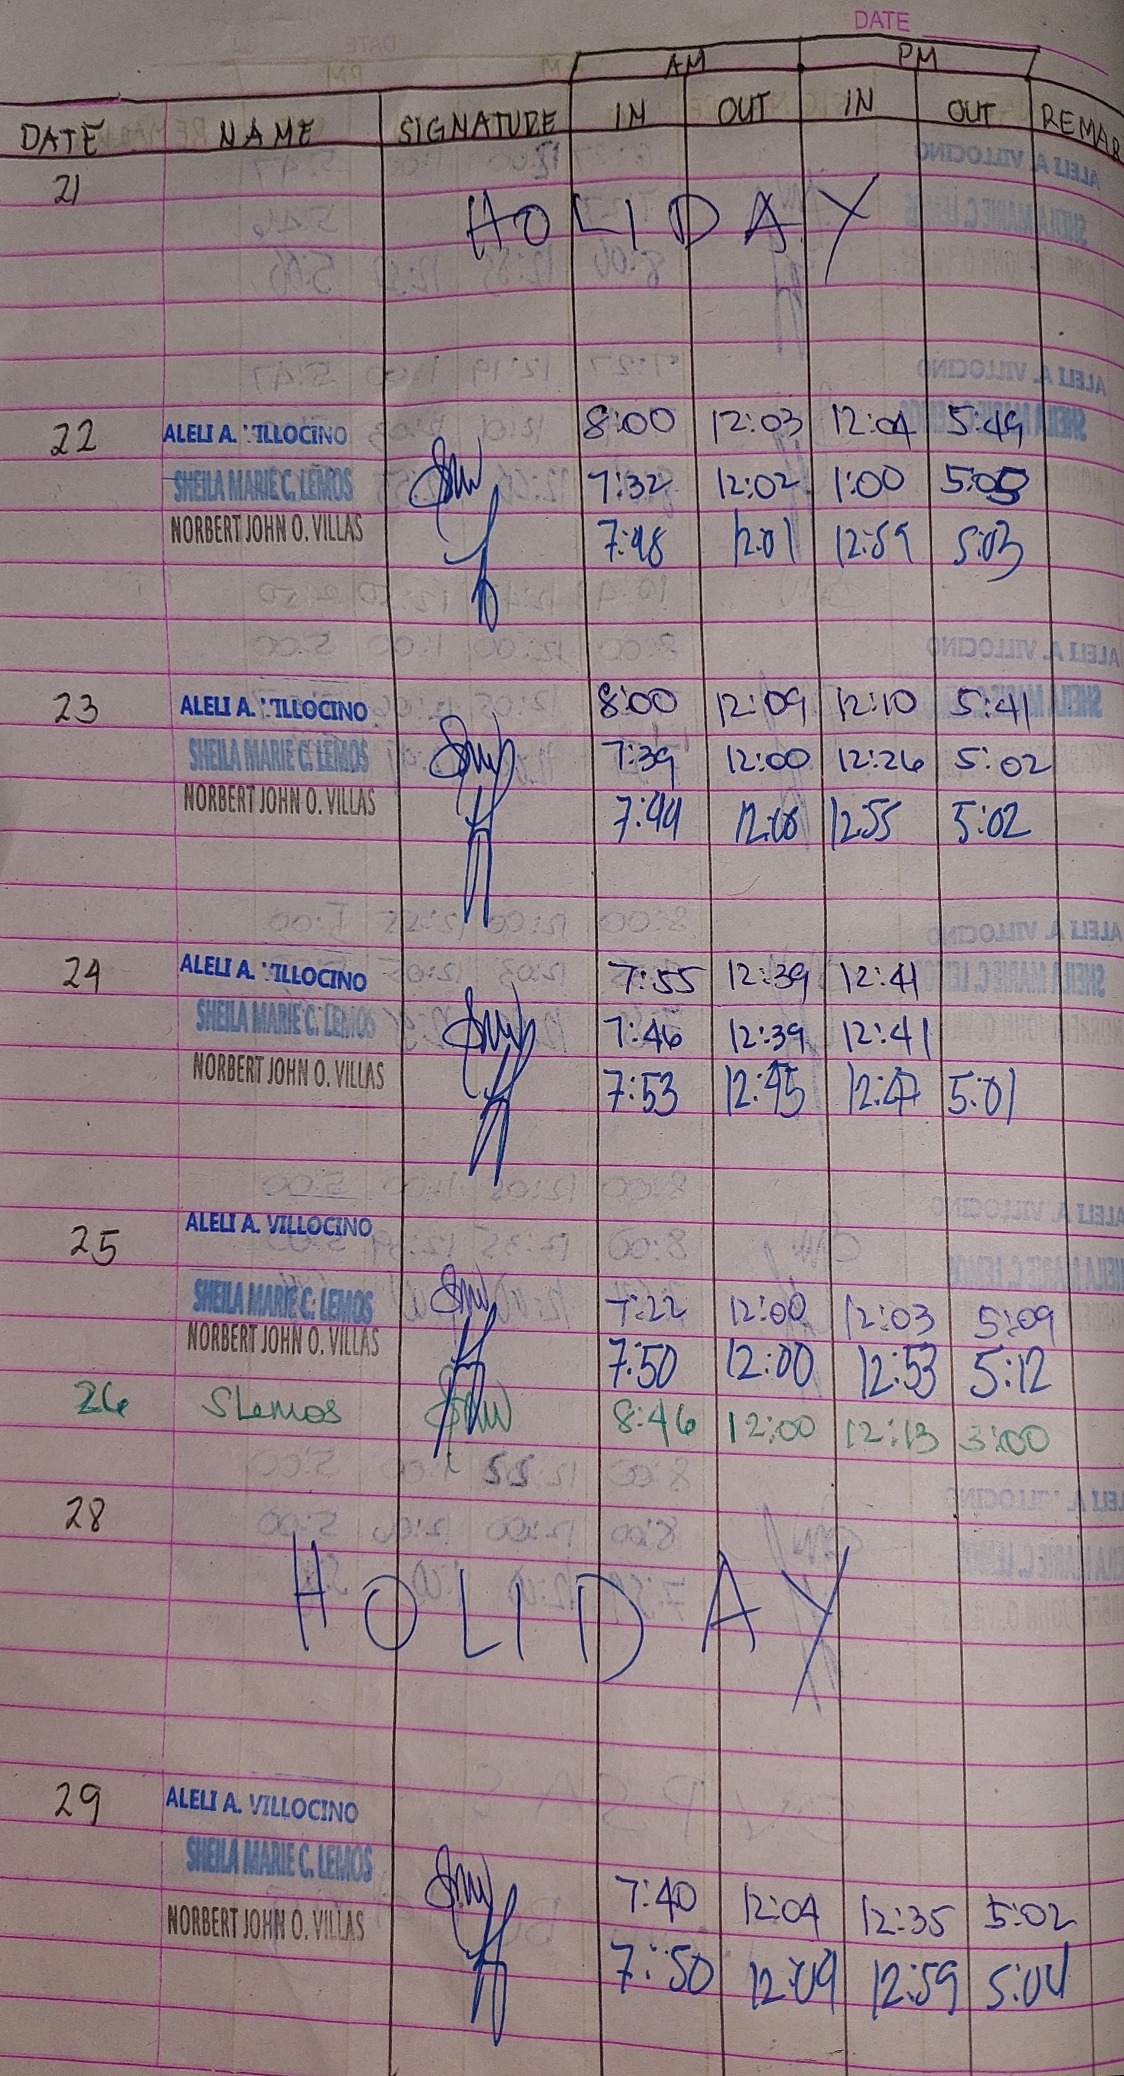 DATE
AM PM
DATE NAME SIGNATURE IN OUT IN OUT REMAR
21
HOLIDAY
22 ALELI A. VILLOCINO 8:00 12:03 12:04 5:49
SHEILA MARIE C. LEMOS 7:32 12:02 1:00 5:05
NORBERT JOHN O. VILLAS 7:48 12:01 12:59 5:03
23 ALELI A. VILLOCINO 8:00 12:09 12:10 5:41
SHEILA MARIE C. LEMOS 7:39 12:00 12:26 5:02
NORBERT JOHN O. VILLAS 7:44 12:08 12:55 5:02
24 ALELI A. VILLOCINO 7:55 12:39 12:41
SHEILA MARIE C. LEMOS 7:46 12:39 12:41
NORBERT JOHN O. VILLAS 7:53 12:45 12:47 5:01
25 ALELI A. VILLOCINO
SHEILA MARIE C. LEMOS 7:22 12:00 12:03 5:09
NORBERT JOHN O. VILLAS 7:50 12:00 12:53 5:12
26 SLemos 8:46 12:00 12:13 3:00
28
HOLIDAY
29 ALELI A. VILLOCINO
SHEILA MARIE C. LEMOS 7:40 12:04 12:35 5:02
NORBERT JOHN O. VILLAS 7:50 12:09 12:59 5:04